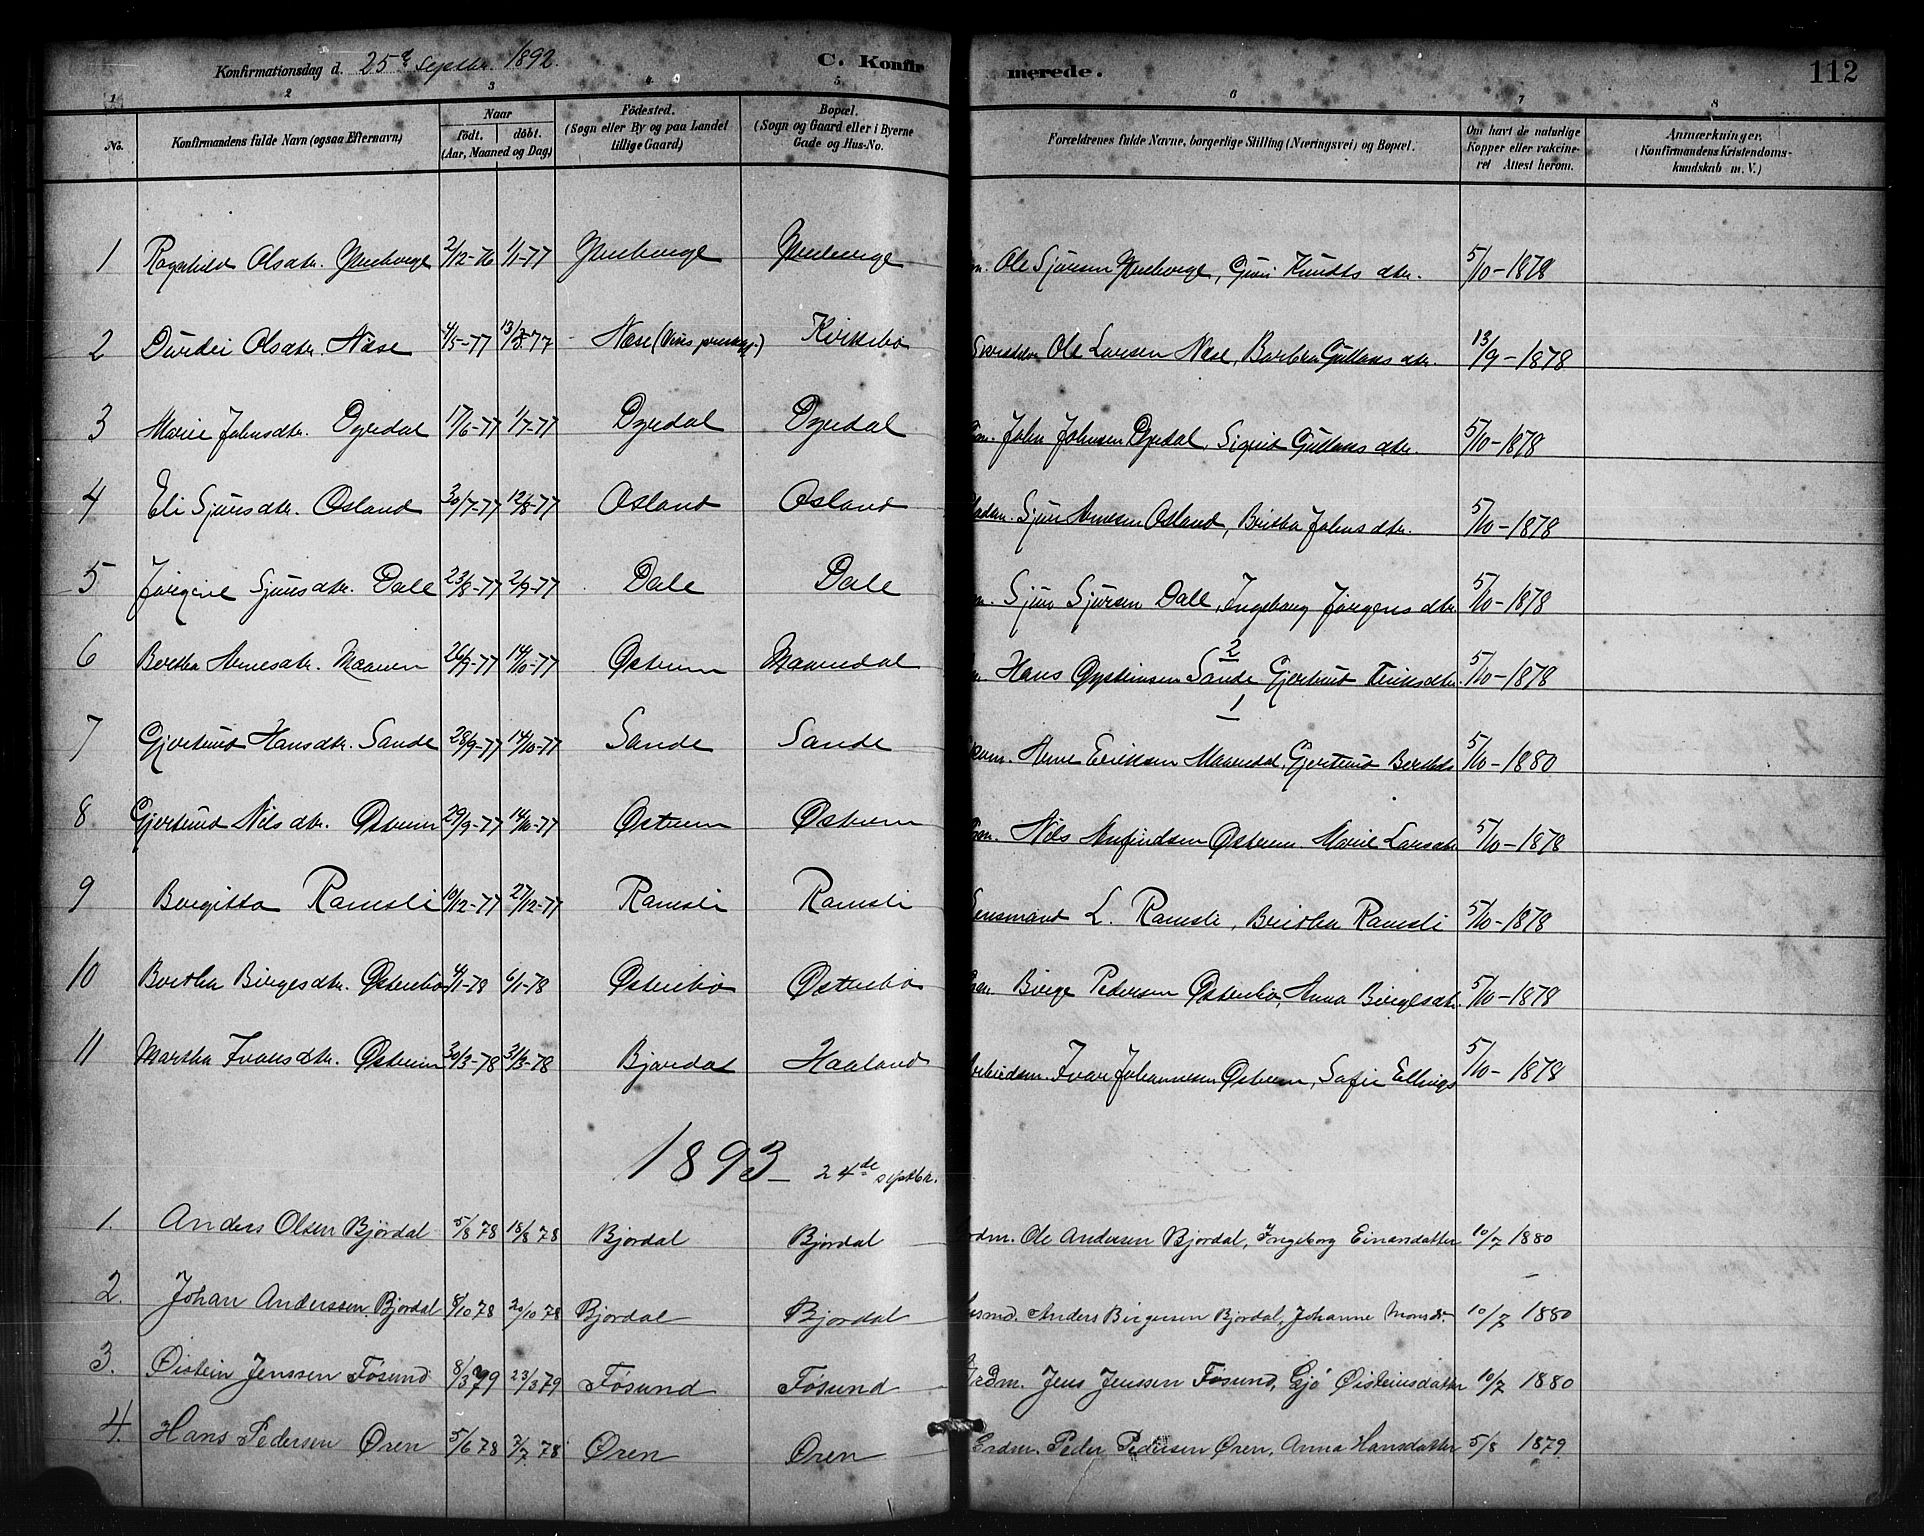 Konfirmationsdag d. 25de Septbr. 1892. C. Konfir merede. 112
1 2 3 4 5 6 7 8
No. Konfirmandens fulde Navn (ogsaa Efternavn) Naar födt. döbt. (Aar, Maaned og Dag) Födested. (Sogn eller By og paa Landet tillige Gaard) Bopæl. (Sogn og Gaard eller i Byerne Gade og Hus-No. Forældrenes fulde Navne, borgerlige Stilling (Næringsvei) og Bopæl. Om havt de naturlige Kopper eller vakcineret Attest herom. Anmærkninger. (Konfirmandens Kristendomskundskab m. V.)
1 Ragnhild Olsdtr. 2/12-76 1/1-77 Ole Sjursen Knudts dtr. 5/10-1878
2 Olsdtr. Nese 4/5-77 13/5-77 Nese Kirkebø Ole Larsen Nese, Barbra Gullaks dtr. 13/9-1878
3 Marie Johnsdtr. Dyrdal 17/6-77 1/7-77 Dyrdal Dyrdal John Johnsen Dyrdal, Sigrid Gullaks dtr. 5/10-1878
4 Eli Sjursdtr. Osland 30/7-77 12/8-77 Osland Osland Sjur Arnesen Osland, Britha Johns dtr. 5/10-1878
5 Jørgine Sjursdtr. Dale 23/8-77 2/9-77 Dale Dale Sjur Sjursen Dale, Ingeborg Jørgens dtr. 5/10-1878
6 Britha Arnesdtr. Maaren 26/9-77 14/10-77 Østrem Maaredal Hans Øysteinsen Sande Gjertrud Eriksdtr. 5/10-1878
2
1
7 Gjertrud Hansdtr. Sande 28/9-77 14/10-77 Sande Sande Arne Eriksen Maaredal, Gjertrud 5/10-1880
8 Gjertrud Nilsdtr. Østrem 29/9-77 14/10-77 Østrem Østrem Nils Arnfindsen Østrem Marie Larsdtr 5/10-1878
9 Birgitta Ramsli 10/12-77 27/12-77 Ramsli Ramsli Lensmand L. Ramsli, Britha Ramsli 5/10-1878
10 Britha Birgesdtr. Østrebø 4/1-78 6/1-78 Østrebø Østrebø Birge Pedersen Østrebø, Anna Birgesdtr 5/10-1878
11 Martha Ivarsdtr. Østrem 30/3-78 31/3-78 Bjordal Haaland Arbeidsm. Ivar Johannesen Østrem, Sofie Ellings 5/10-1878
1893 24de septbr.
1. Anders Olsen Björdal 5/8 78 18/8 78 Bjordal Bjordal Grdm. Ole Andersen Bjordal, Ingeborg Einarsdatter 10/7 1880
2. Johan Anderssen Bjordal 8/10 78 20/10 78 Bjordal Bjordal Husmd. Anders Birgersen Bjordal, Johanne Monsdr. 10/7 1880
3. Øistein Jenssen Føsund 8/3 79 23/3 79 Føsund Føsund Grdm. Jens Jenssen Føsund, Gjø Øisteinsdatter 10/7 1880
4. Hans Pedersen Øren 5/6 78 7/7 78 Øren Øren Grdm. Peder Pedersen Øren, Anna Hansdatter 5/8 1879